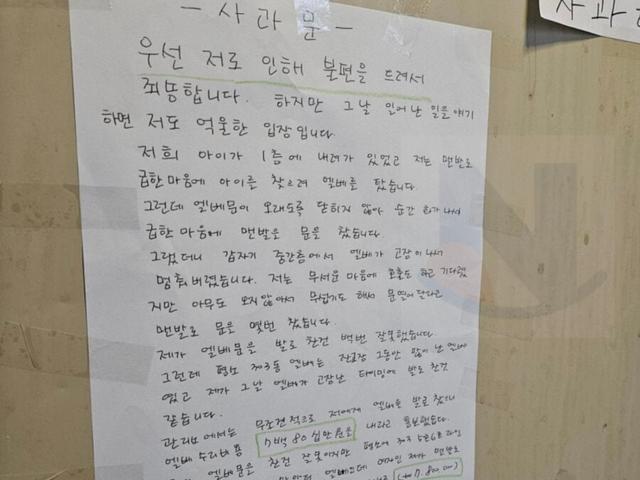 - 사 과 문 -
사과
우선 저로 인해 불편을 드려서
죄송합니다. 하지만 그날 일어난 일을 얘기
하면 저도 억울한 입장 입니다.
저희 아이가 1층에 내려가 있었고 저는 맨발로
급한마음에 아이를 찾으려 엘베를 탔습니다.
그런데 엘베문이 오래도록 닫히지 않아 순간 화가 나서
급한 마음에 맨발로 문을 찼습니다.
그랬더니 갑자기 중간층에서 엘베가 고장이 나서
멈춰버렸습니다. 저는 무서운 마음에 호출도 하고 기다렸
지만 아무도 오지않아서 무섭기도 해서 문열어달라고
맨발로 문을 몇번 찼습니다.
제가 엘베문을 발로 찬건 백번 잘못했습니다
그런데 평소 엘베는 잔고장 그동안 많이 난 엘베
였고 제가 그날 엘베가 고장난 타이밍에 발로 찬것
같습니다.
관리소에서는 무조건적으로 저에게 엘베를 발로 찼으니
엘베 수리비용 7백 80 십만원을 내라고 통보했습니다.
엘베문을 찬건 잘못이지만 평소에
엘베인데 여자인 제가 맨발로